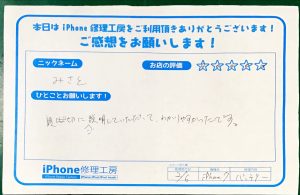 本日は iPhone 修理工房をご利用頂きありがとうございます!
ご感想をお願いします!
ニックネーム
お店の評価
☆☆☆☆☆
みさと
ひとことお願いします!
説明していただいて、わかりやすかったです。
iPhone修理工房
3/6 iPhone7 バッテリー